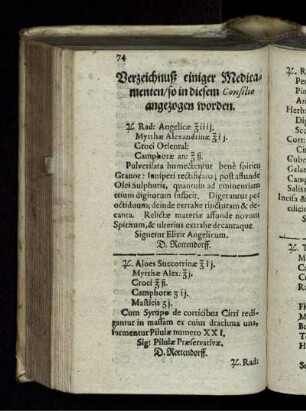 74
Verzeichnuß einiger Medica-
menten/so in diesem Consilio
angezogen worden.
℞. Rad: Angelicæ ℥iiij.
Myrrhæ Alexandrinæ ℥ij.
Croci Oriental:
Camphoræ an: ℥ß.
Pulverisata humectentur benè spiritu
Granor: Iuniperi rectificato; post affunde
Olei Sulphuris, quantum ad eminentiam
trium digitorum sufficit. Digerantur per
octiduum; deinde extrahe tincturam & de-
canta. Relictæ materiæ affunde novum
Spiritum, & ulterius extrahe decantaque.
Signetur Elixir Angelicum.
D. Rottendorff.
℞. Aloes Succotrinæ ℥ij.
Myrrhæ Alex: ℥j.
Croci ℥ß.
Camphoræ ʒij.
Masticis ʒj.
Cum Syrupo de corticibus Citri redi-
gantur in massam ex cuius drachma una,
formentur Pilulæ numero XXI.
Sig: Pilulæ Præservativæ.
D. Rottendorff.
℞. Rad: